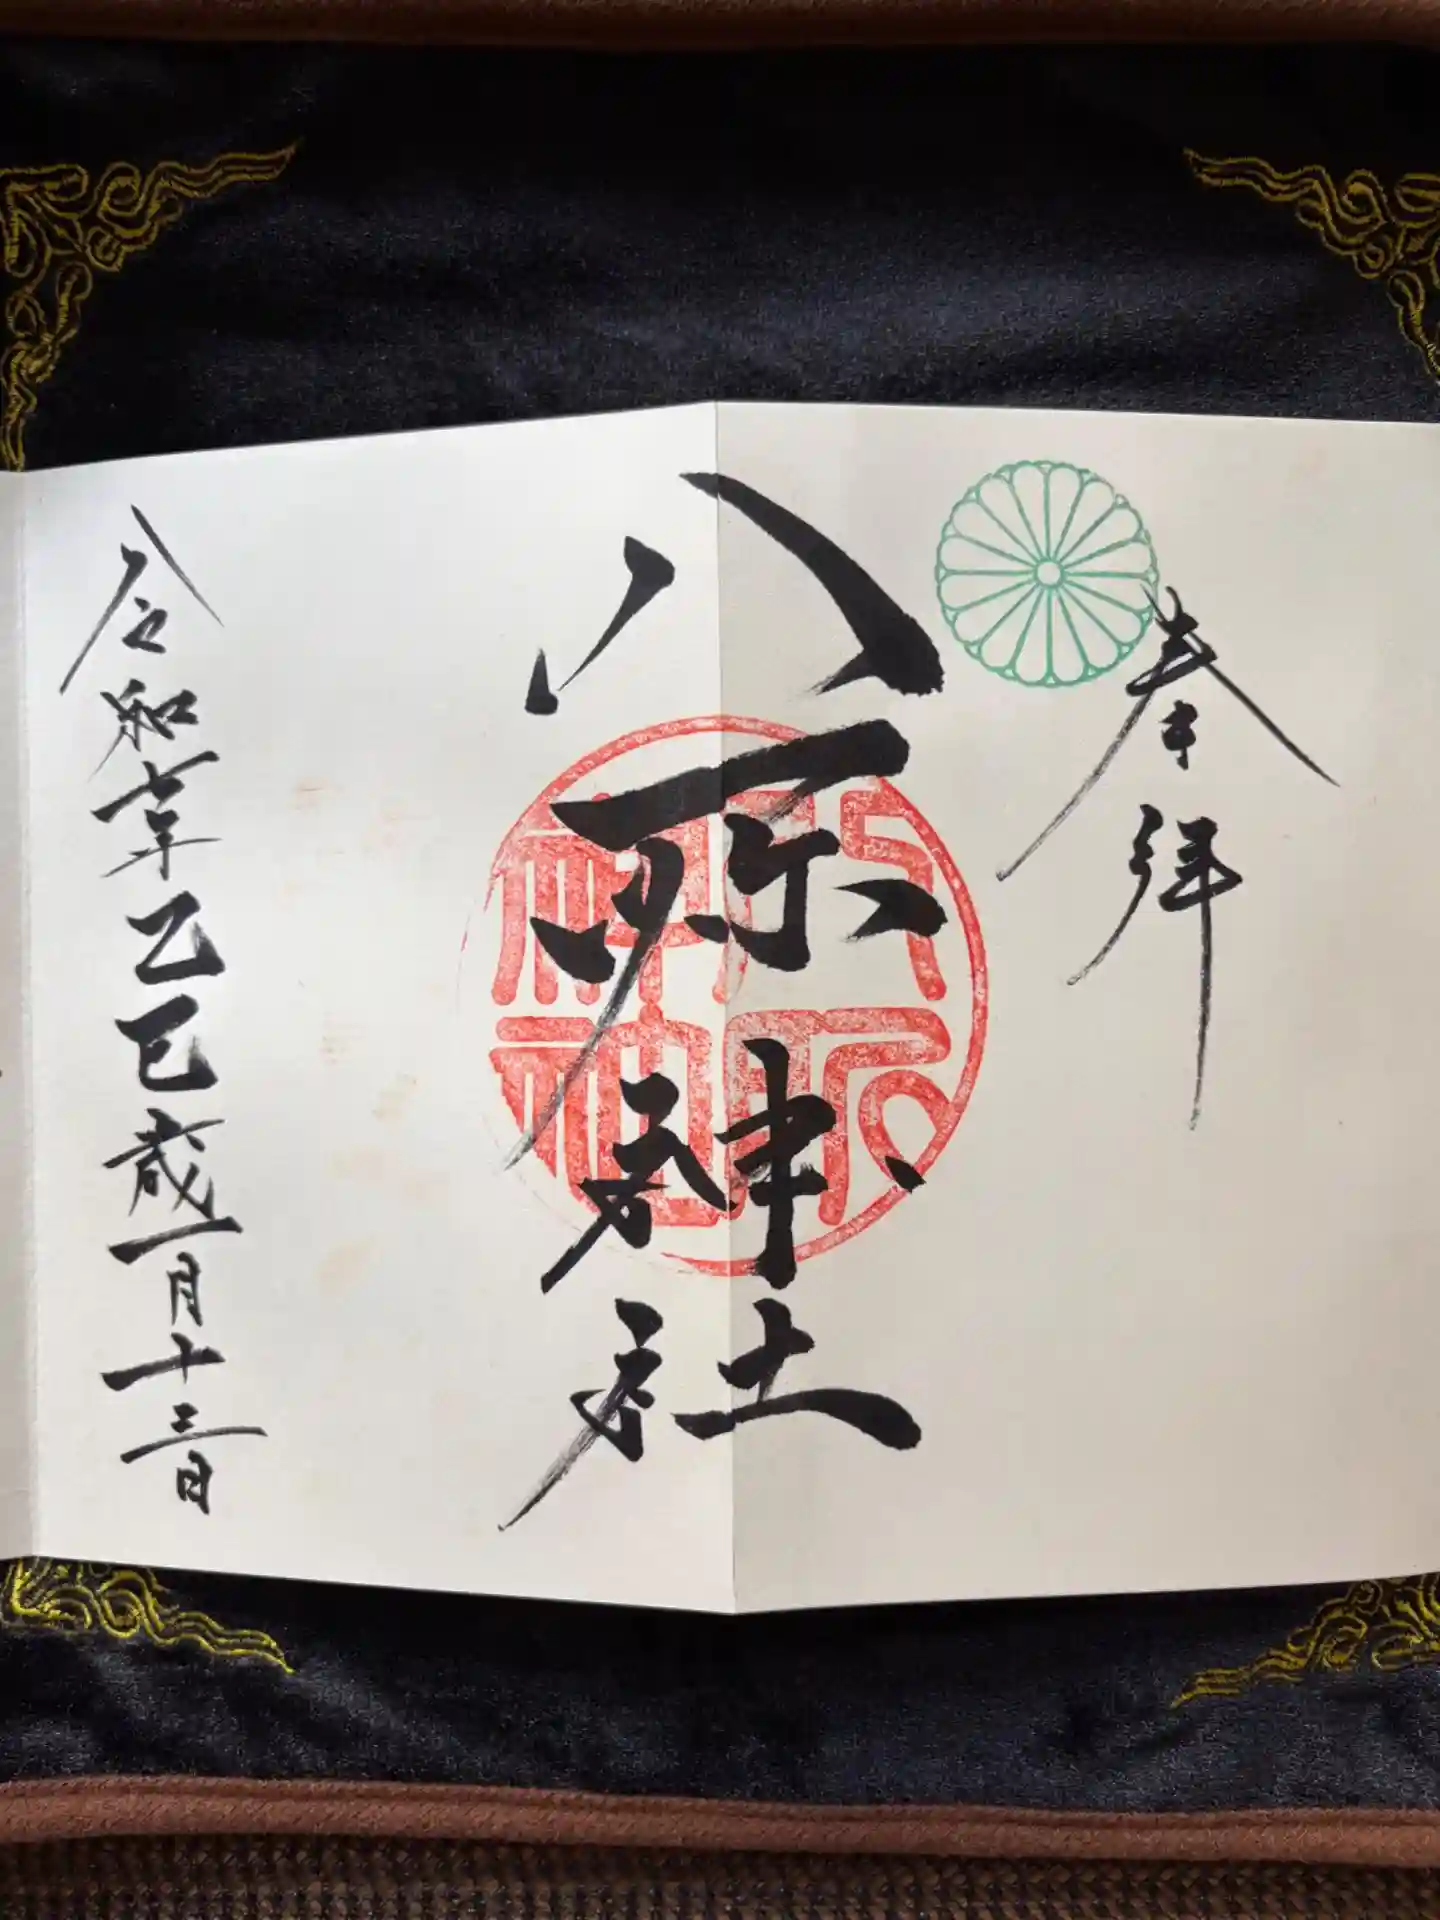 奉拝
八所神社
八所
神社
令和七年乙巳歳一月十三日